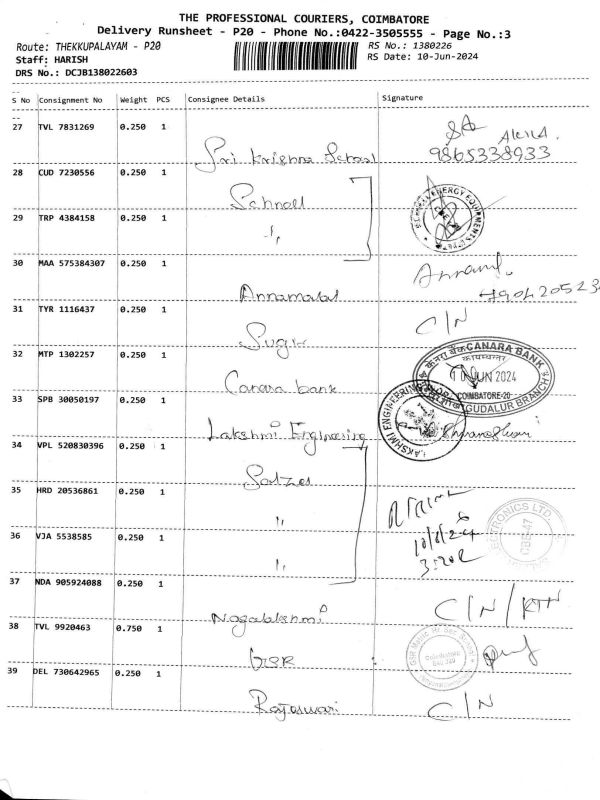 THE PROFESSIONAL COURIERS, COIMBATORE
Delivery Runsheet - P20 - Phone No.:0422-3505555 - Page No.:3
Route: THEKKUPALAYAM - P20
RS No.: 1380226
Staff: HARISH
RS Date: 10-Jun-2024
DRS No.: DCJB138022603
S No Consignment No Weight PCS Consignee Details Signature
27 TVL 7831269 0.250 1
Sri Krishna School
9865338933
28 CUD 7230556 0.250 1
Schnell
29 TRP 4384158 0.250 1
"
30 MAA 575384307 0.250 1
Annamalai
31 TYR 1116437 0.250 1 C/N
Sugir
32 MTP 1302257 0.250 1
CANARA BANK
10 JUN 2024
COIMBATORE-20
GUDALUR BRANCH
Canara bank
33 SPB 30050197 0.250 1
Lakshmi Engineering
LAKSHMI ENGINEERING
34 VPL 520830396 0.250 1
Salzer
35 HRD 20536861 0.250 1
"
36 VJA 5538585 0.250 1
"
CBE-47
37 NDA 905924088 0.250 1
Nagalakshmi
C/N/KTN
38 TVL 9920463 0.750 1
GSR
39 DEL 730642965 0.250 1
Rajeswari
C/N